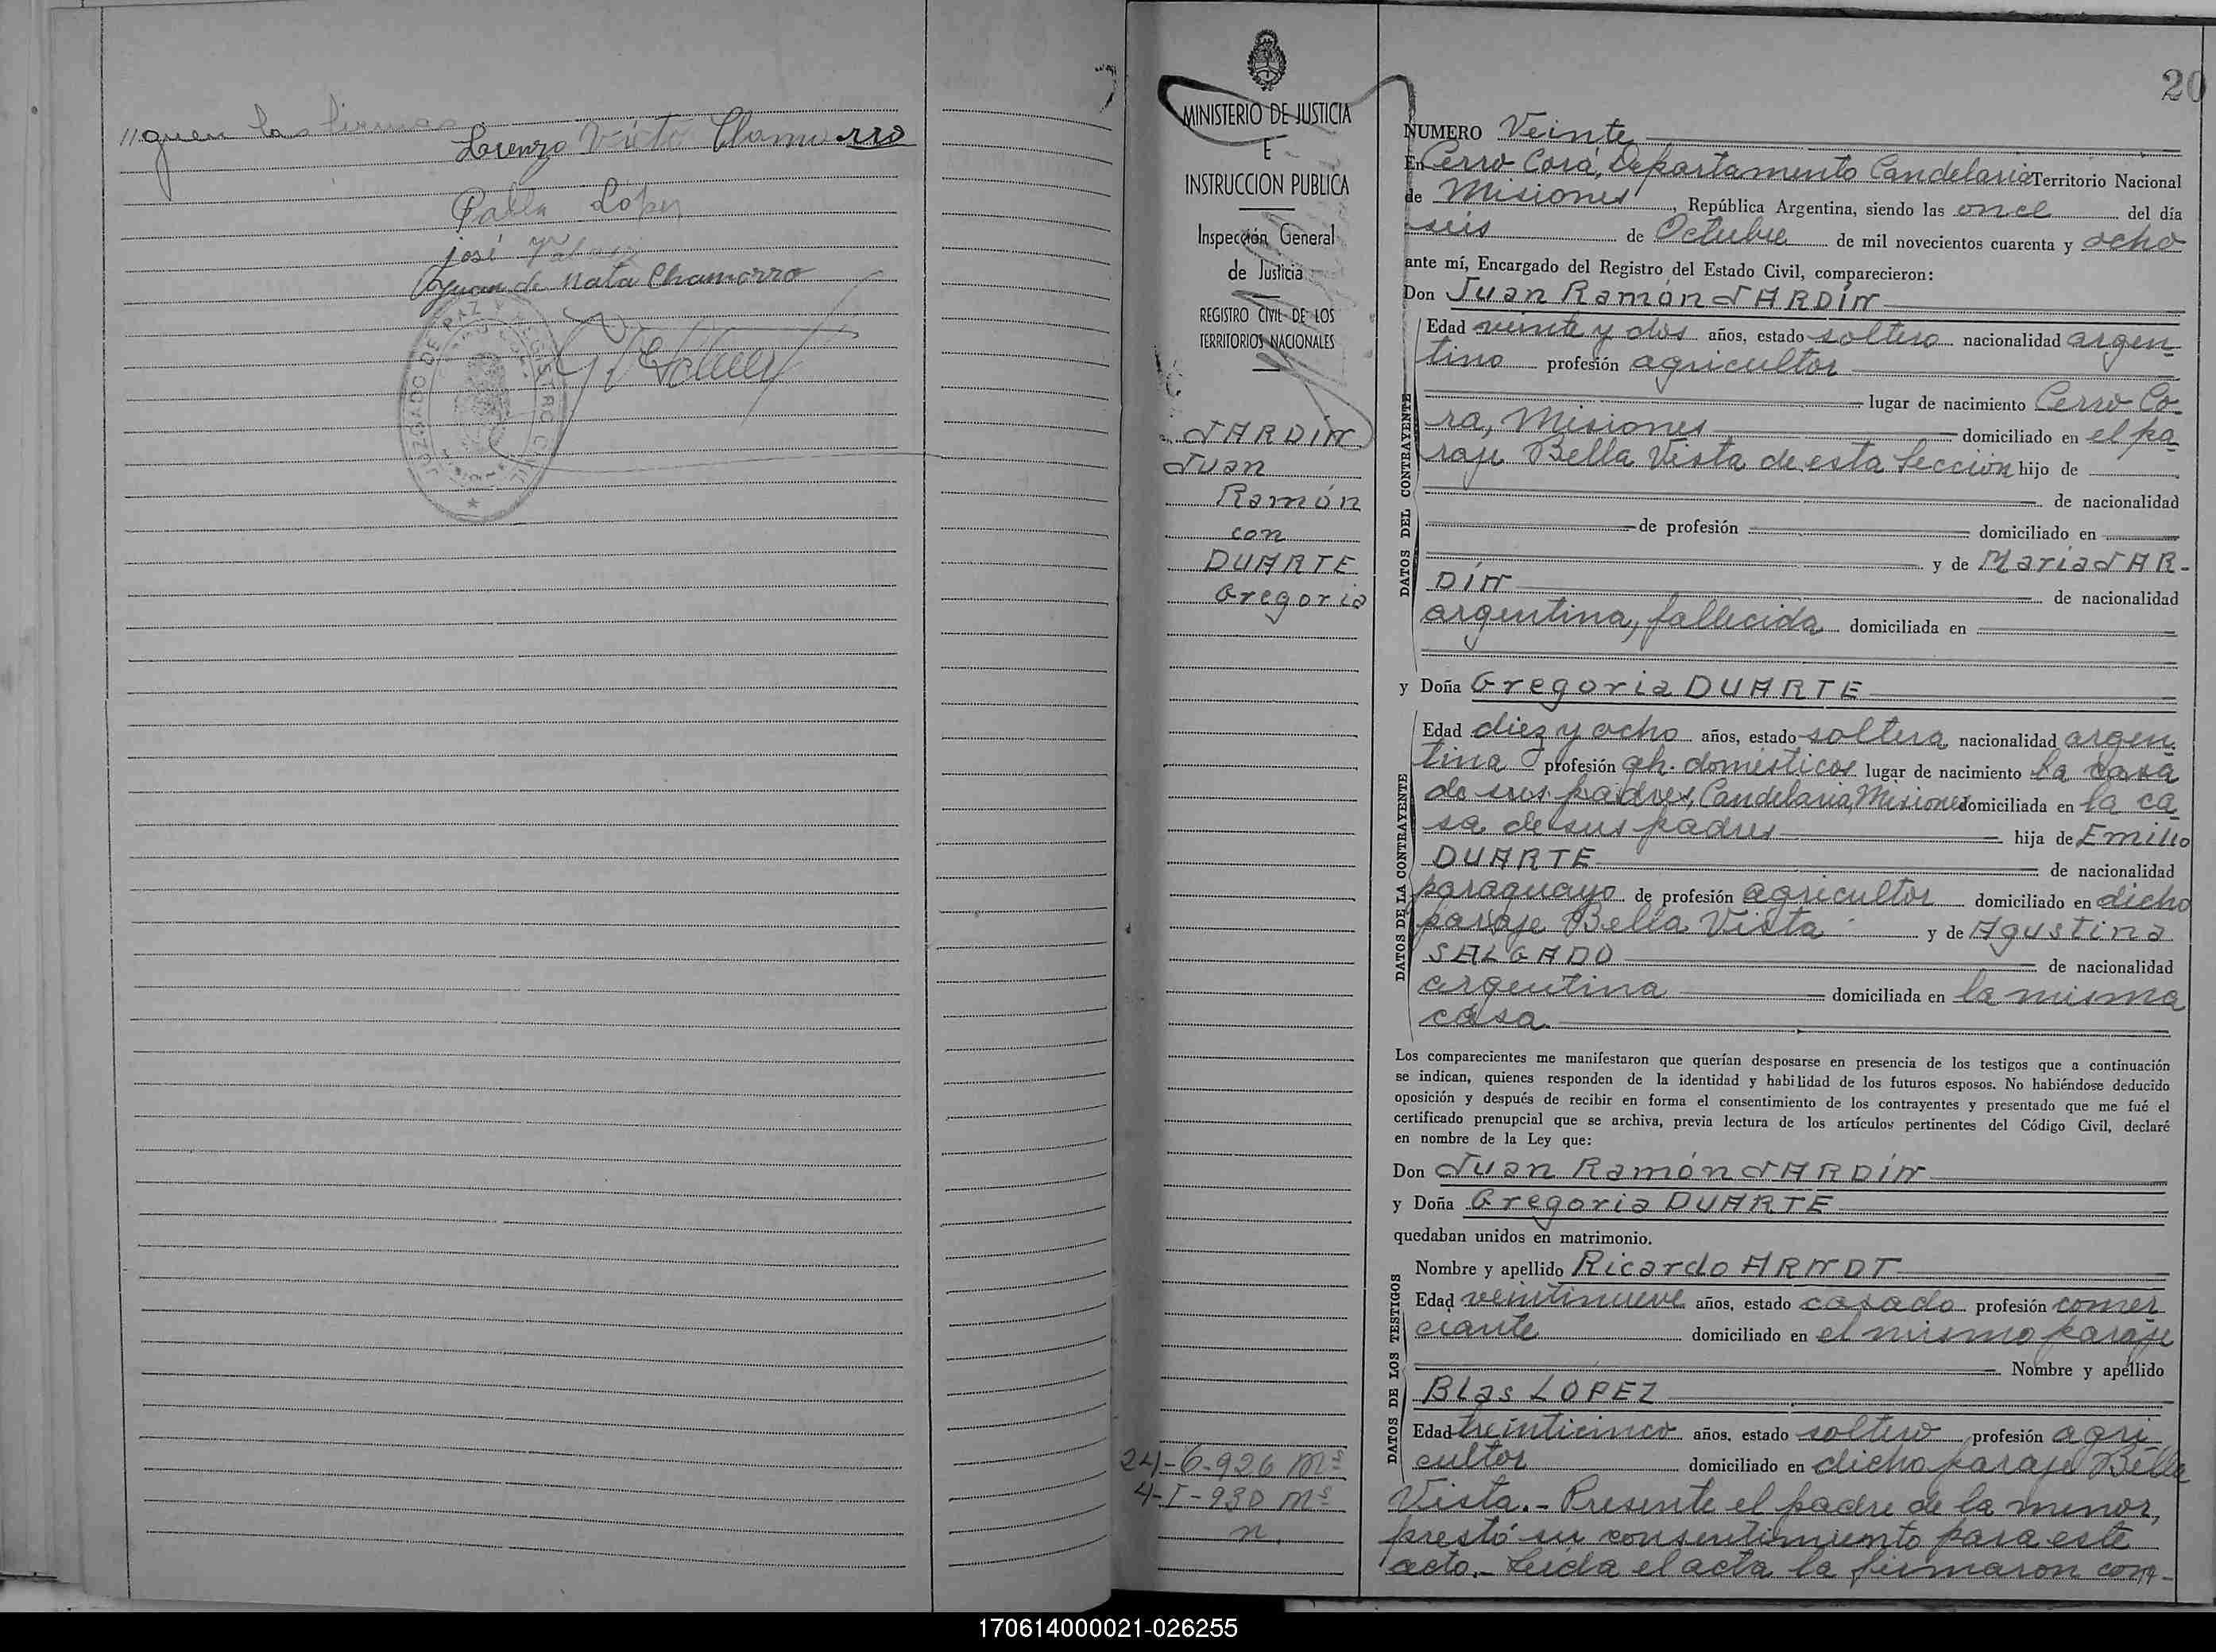 //guen las firmas
Lorenzo Victo Chamorro
Pabla Lopez
josé
Juan de Mata Chamorro
JUZGADO DE PAZ Y REGISTRO CIVIL
MINISTERIO DE JUSTICIA
E
INSTRUCCION PUBLICA
Inspección General
de Justicia
REGISTRO CIVIL DE LOS
TERRITORIOS NACIONALES
JARDÍN
Juan
Ramón
con
DUARTE
Gregoria
24-6-926 Ms
4-I-930 Ms
n.
20
NUMERO Veinte
En Cerro Corá, Departamento Candelaria Territorio Nacional
de Misiones, República Argentina, siendo las once del día
seis de Octubre de mil novecientos cuarenta y ocho
ante mí, Encargado del Registro del Estado Civil, comparecieron:
Don Juan Ramón JARDÍN
DATOS DEL CONTRAYENTE
Edad veinte y dos años, estado soltero nacionalidad argen-
tino profesión agricultor
lugar de nacimiento Cerro Co-
ra, Misiones domiciliado en el pa-
raje Bella Vista de esta Sección hijo de
de nacionalidad
de profesión domiciliado en
y de Maria JAR-
DÍN de nacionalidad
argentina, fallecida domiciliada en
y Doña Gregoria DUARTE
DATOS DE LA CONTRAYENTE
Edad diez y ocho años, estado soltera nacionalidad argen-
tina profesión qh. domésticos lugar de nacimiento la casa
de sus padres, Candelaria, Misiones domiciliada en la ca-
sa de sus padres hija de Emilio
DUARTE de nacionalidad
paraguayo de profesión agricultor domiciliado en dicho
paraje Bella Vista y de Agustina
SALGADO de nacionalidad
argentina domiciliada en la misma
casa.
Los comparecientes me manifestaron que querían desposarse en presencia de los testigos que a continuación
se indican, quienes responden de la identidad y habilidad de los futuros esposos. No habiéndose deducido
oposición y después de recibir en forma el consentimiento de los contrayentes y presentado que me fué el
certificado prenupcial que se archiva, previa lectura de los artículos pertinentes del Código Civil, declaré
en nombre de la Ley que:
Don Juan Ramón JARDÍN
y Doña Gregoria DUARTE
quedaban unidos en matrimonio.
DATOS DE LOS TESTIGOS
Nombre y apellido Ricardo ARNDT
Edad veintinueve años, estado casado profesión comer
ciante domiciliado en el mismo paraje
Nombre y apellido
BLas LOPEZ
Edad treinticinco años, estado soltero profesión agri
cultor domiciliado en dicho paraje Bella
Vista.- Presente el padre de la menor,
prestó su consentimiento para este
acto.- Leída el acta la firmaron con-
170614000021-026255